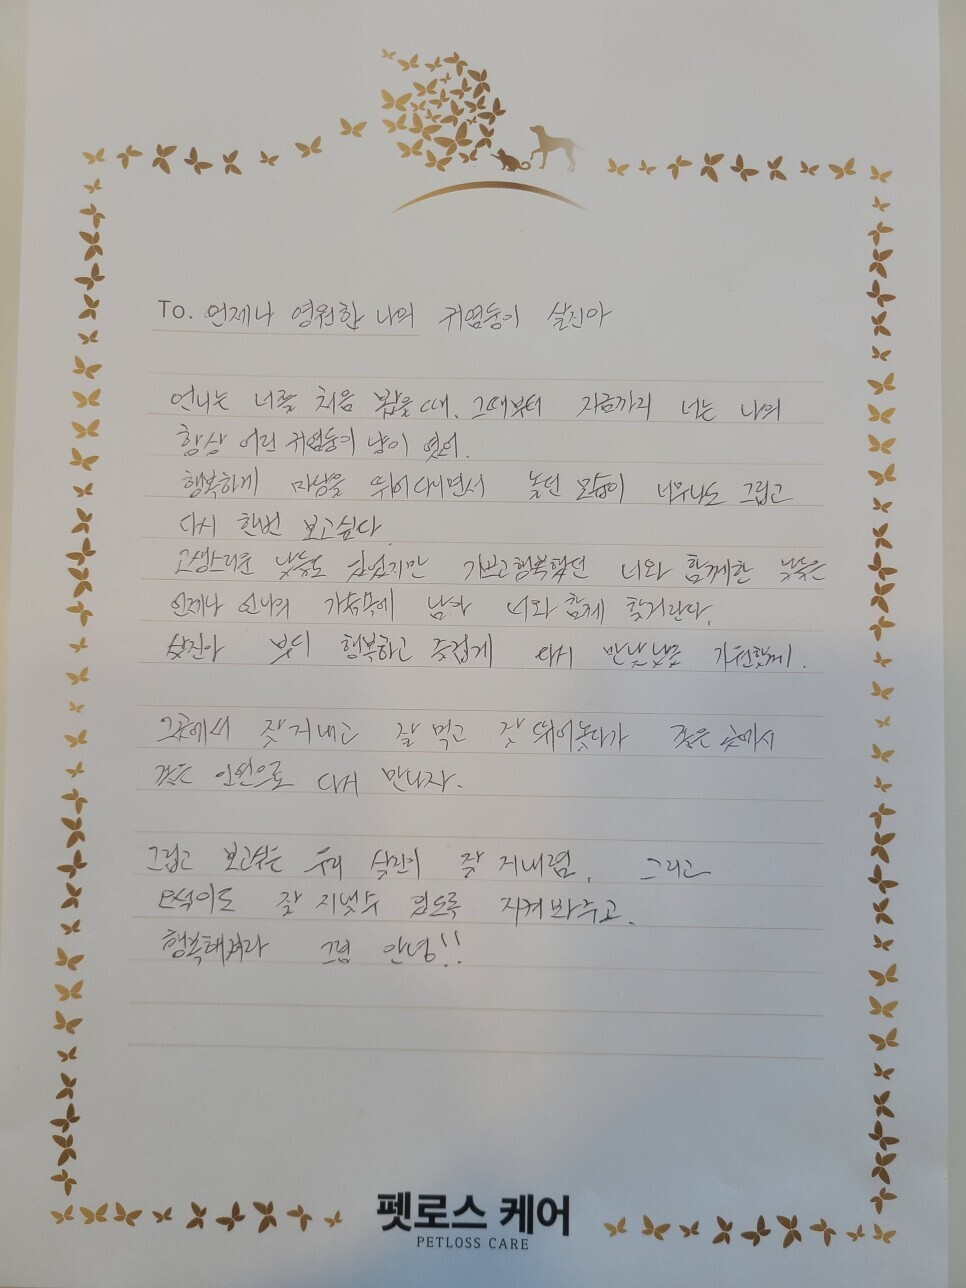 To. 언제나 영원한 나의 귀염둥이 살진아
언니는 너를 처음 봤을때. 그때부터 지금까지 너는 나의
항상 어린 귀염둥이 냥이 였어.
행복하게 마당을 뛰어다니면서 놀던 모습이 너무나도 그립고
다시 한번 보고싶다.
고생스러운 날들도 있었지만 기쁘고행복했던 너와 함께한 날들은
언제나 언니의 가슴속에 남아 너와 함께 할거란다.
살진아 부디 행복하고 즐겁게 다시 만날날을 기원할게.
그곳에서 잘지내고 잘 먹고 잘 뛰어놀다가 좋은 곳에서
좋은 인연으로 다시 만나자.
그립고 보고싶은 우리 살진이 잘 지내렴. 그리고
잘 지낼수 있도록 지켜봐주고.
행복해져라 그럼 안녕!!
펫로스 케어
PETLOSS CARE